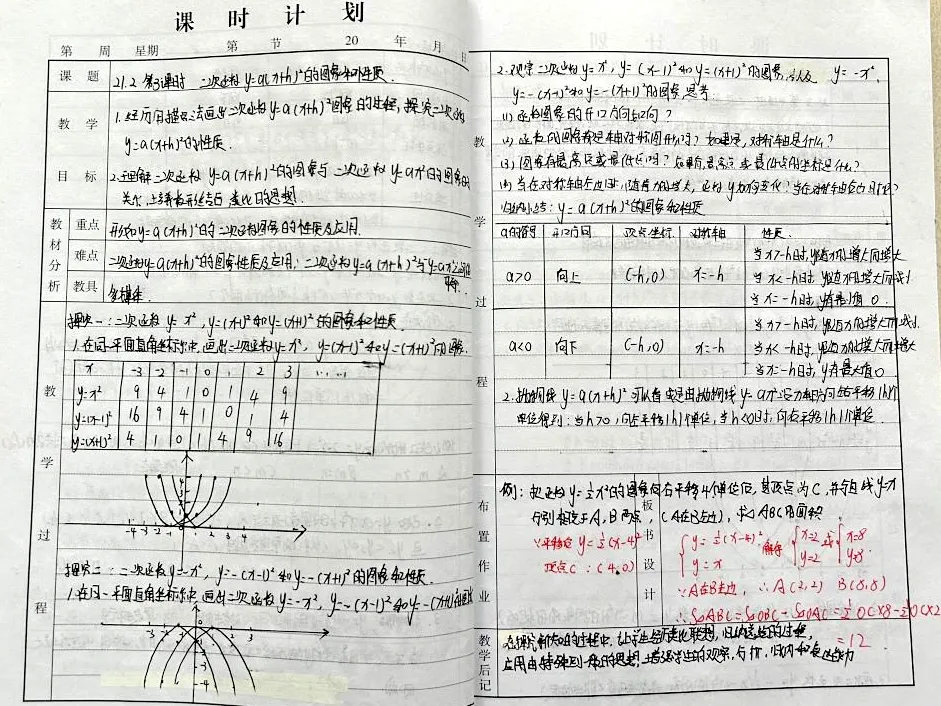 课 时 计 划
第 周 星期 第 节 20 年 月 日
课 题
21.2 第3课时 二次函数 y=a(x+h)²的图象和性质.
教 学 目 标
1. 经历用描点法画出二次函数 y=a(x+h)²图象的过程, 探究二次函数
y=a(x+h)²的性质.
2. 理解二次函数 y=a(x+h)²的图象与二次函数 y=ax²的图象的
关系,
教材分析
重点
形如y=a(x+h)²的二次函数图象的性质及应用.
难点
二次函数y=a(x+h)²的图象性质及应用; 二次函数y=a(x+h)²与y=ax²之间的
教具
多媒体.
教 学 过 程
探究一:二次函数 y=x², y=(x-1)²和y=(x+1)²的图象和性质.
1. 在同一平面直角坐标系中, 画出二次函数y=x², y=(x-1)²和y=(x+1)²的图象.
x -3 -2 -1 0 1 2 3 ... ...
y=x² 9 4 1 0 1 4 9
y=(x-1)² 16 9 4 1 0 1 4
y=(x+1)² 4 1 0 1 4 9 16
探究二:二次函数y=-x², y=-(x-1)²和y=-(x+1)²的图象和性质.
1. 在同一平面直角坐标系中, 画出二次函数y=-x², y=-(x-1)²和y=-(x+1)²的图象
2. 观察二次函数 y=x², y=(x-1)²和y=(x+1)²的图象, 以及 y=-x²,
y=-(x-1)²和y=-(x+1)²的图象, 思考
(1) 函数图象的开口方向如何?
(2) 函数的图象是轴对称图形吗? 如果是, 对称轴是什么?
(3) 图象有最高点或最低点吗? 如果有, 最高点或最低点的坐标是什么?
(4) 当在对称轴左边时, 随着x的增大, 函数y如何变化? 当在对称轴右边时呢?
归纳小结: y=a(x+h)²的图象和性质
教 学 过 程
a的符号 开口方向 顶点坐标 对称轴 性质
a>0 向上 (-h,0) x=-h
当x>-h时, y随x的增大而增大
当x<-h时, y随x的增大而减小.
当x=-h时, y有最小值 0.
a<0 向下 (-h,0) x=-h
当x>-h时, y随x的增大而减小.
当x<-h时, y随x的增大而增大
当x=-h时, y有最大值0
2. 抛物线 y=a(x+h)²可以看成是由抛物线 y=ax²沿水平方向左右平移|h|个
单位得到: 当h>0, 向左平移|h|个单位, 当h<0时, 向右平移|h|个单位.
布置作业
板书设计
例: 把函数y=½x²的图象向右平移4个单位后, 其顶点为C, 并与直线y=x
分别相交于A, B两点, (A在B左边), 求△ABC的面积.
∵平移后 y=½(x-4)²
顶点C: (4,0)
y=½(x-4)²
y=x
解得
x=2 y=2 或 x=8 y=8
∵A在B左边 ∴A(2,2) B(8,8)
∴S△ABC=S△OBC-S△OAC=½OC×8-½OC×2
=12
教学后记
在探究新知的过程中, 让学生经历类比联想, 归纳总结的过程,
应用由特殊到一般的思想, 培养学生的观察, 分析, 归纳和表达能力